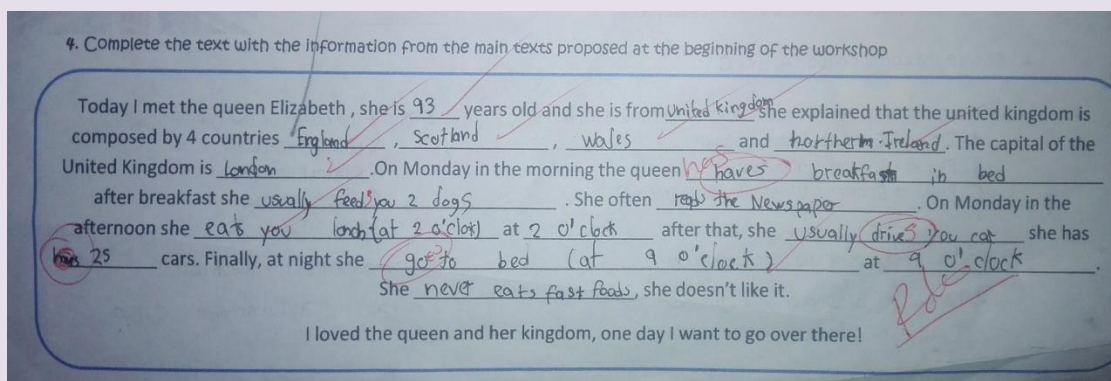 4. Complete the text with the information from the main texts proposed at the beginning of the workshop
Today I met the queen Elizabeth , she is 93 years old and she is from united kingdom she explained that the united kingdom is
composed by 4 countries England , Scotland , Wales and northerm Ireland. The capital of the
United Kingdom is London .On Monday in the morning the queen has haves breakfast in bed
after breakfast she usually feeds you 2 dogs . She often reads the Newspaper . On Monday in the
afternoon she eats you lonch (at 2 o'clok) at 2 o'clock after that, she usually drives you car she has
25 cars. Finally, at night she goes to bed (at 9 o'clock) at 9 o'clock .
She never eats fast foods, she doesn't like it.
I loved the queen and her kingdom, one day I want to go over there!